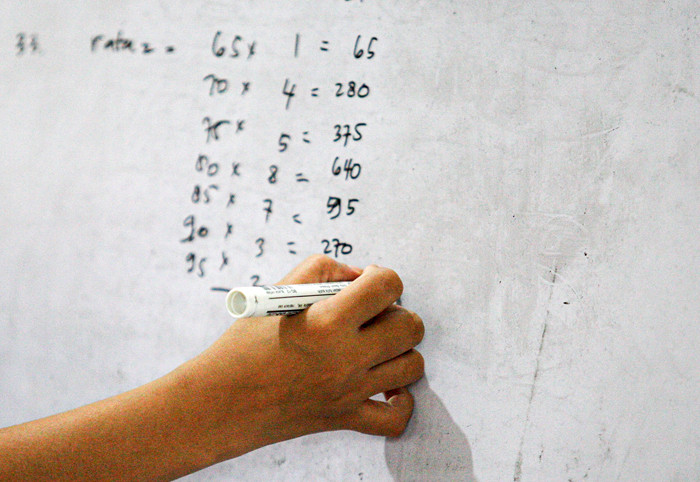 33. rata2 = 65 x 1 = 65
70 x 4 = 280
75 x 5 = 375
80 x 8 = 640
85 x 7 = 595
90 x 3 = 270
95 x 2